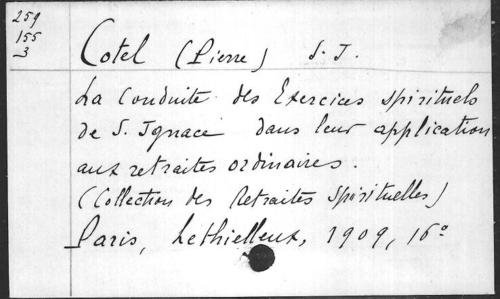 259
155
3
Cotel (Pierre) S. J.
La Conduite des Exercices spirituels
de S. Ignace dans leur application
aux retraites ordinaires.
(Collection des Retraites Spirituelles)
Paris, Lethielleux, 1909, 16°